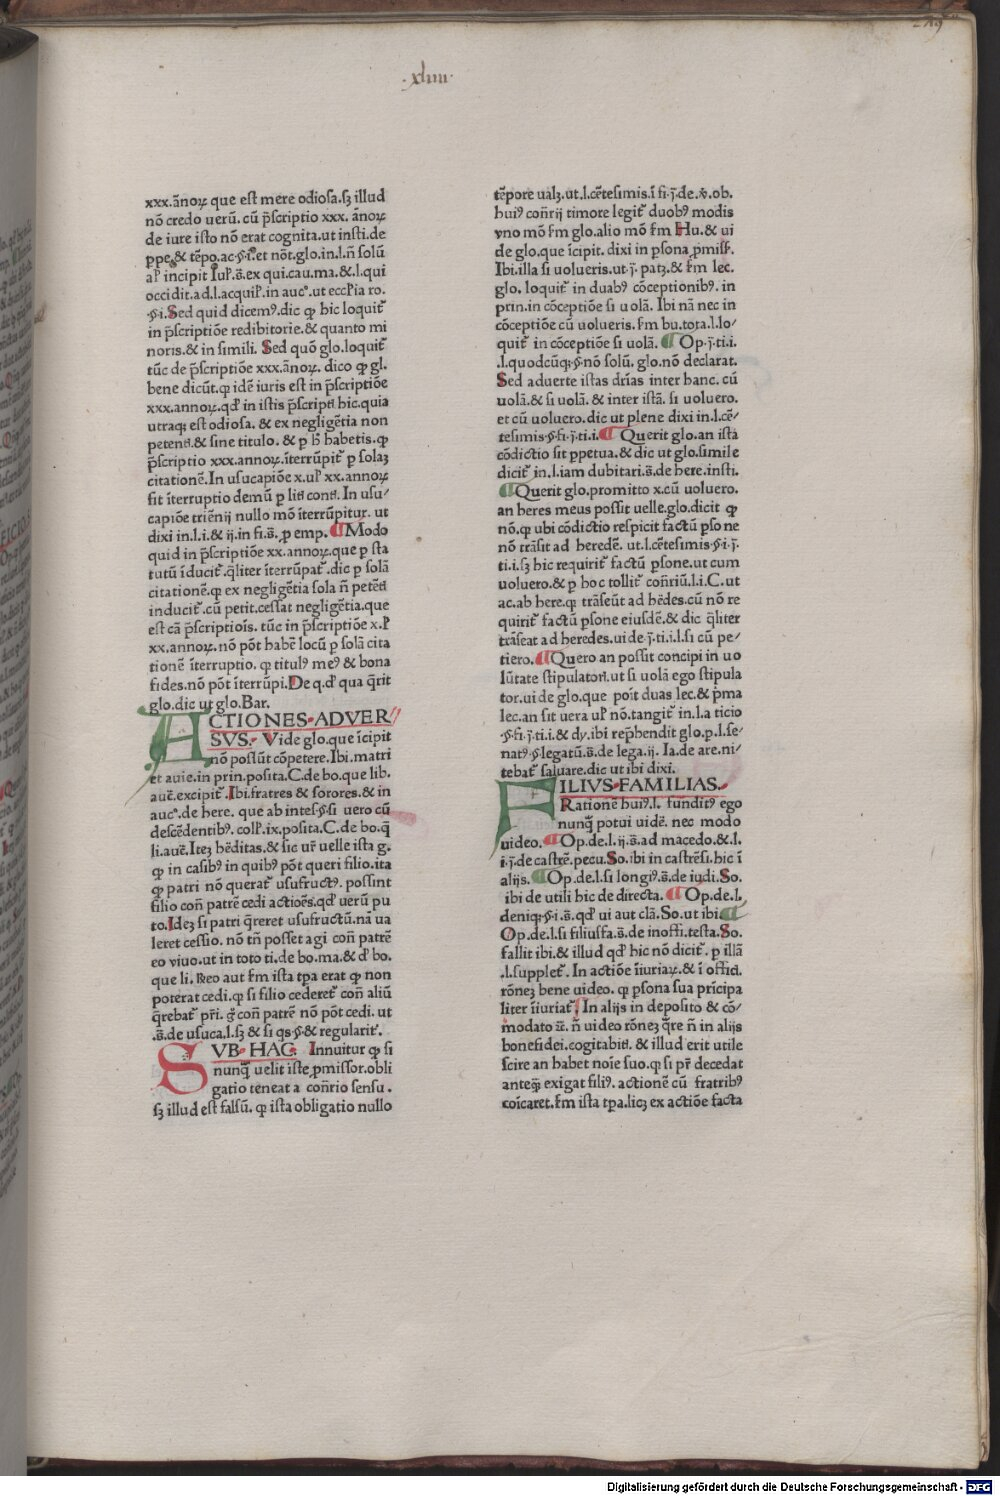 ·xliiii·
xxx.ãnoꝝ que est mere odiosa.sꝫ illud
nõ credo uerũ. cũ p̃scriptio xxx. ãnoꝝ
de iure isto nõ erat cognita.ut insti.de
ꝑpe.& tẽpo.ac.§.i.et nõt.glo.in.l.ñ solũ
incipit .s̃.ex qui.cau.ma.&.l.qui
occidit.ad.l.acquil.in auc°.ut eccl̃ia ro.
.§.i.Sed quid dicemꝰ.dic ꝙ hic loquit̃
in p̃scriptiõe redibitorie.& quanto mi
noris.& in simili. Sed quõ glo.loquit̃
tũc de p̃scriptiõe xxx.ãnoꝝ. dico ꝙ gl.
bene dicũt.ꝙ idẽ iuris est in p̃scriptiõe
xxx.annoꝝ.qď in istis p̃scripti.hic.quia
utraqꝫ est odiosa. & ex negligẽtia non
petenti.& sine titulo. & p̱ habetis.ꝙ
p̃scriptio xxx.annoꝝ.ĩterrũpit̃ ꝑ solaꝫ
citationẽ.In usucapiõe x.ul̃ xx.annoꝝ
fit ĩterruptio demũ ꝑ liti conti. In usu⸗
capiõe triẽnij nullo mõ ĩterrũpitur. ut
dixi in.l.i.& ij.in fi.s̃.ꝓ emp. ¶Modo
quid in p̃scriptiõe xx.annoꝝ.que ꝑ sta
tutũ ĩducit̃.q̃liter ĩterrũpat̃.dic ꝑ solã
citationẽ.ꝙ ex negligẽtia sola ñ petẽti
inducit̃.cũ petit.cessat negligẽtia.que
est cã p̃scriptiois. tũc in p̃scriptiõe x.ul̃
xx.annoꝝ.nõ põt habẽ locũ ꝑ solã cita
tionẽ ĩterruptio. ꝙ titulꝰ meꝰ & bona
fides.nõ põt ĩterrũpi.De q.ď qua q̃rit
glo.dic ut glo.Bar.
ACTIONES·ADVER
SVS. Vide glo.que ĩcipit
nõ possũt cõpetere.Ibi.matri
et auie.in prin.posita.C.de bo.que lib.
aucẽ.excipit̃.Ibi.fratres & sorores.& in
auc°.de here. que ab intes.§.si uero cũ
descẽdentibꝰ. coll.ix.posita.C.de bo.q̃
li.auẽ.Iteꝫ hẽditas.& sic ur̃ uelle ista g.
ꝙ in casibꝰ in quibꝰ põt queri filio.ita
ꝙ patri nõ querat̃ usufructꝰ. possint
filio con̄ patrẽ cedi actiões.qď uerũ pu
to.Ideꝫ si patri q̃reret usufructũ.nã ua
leret cessio. nõ tñ posset agi con̄ patrẽ
eo uiuo.ut in toto ti.de bo.ma.& ď bo.
que li. Reo aut fm ista tp̃a erat ꝙ non
poterat cedi.ꝙ si filio cederet̃ con̄ aliũ
q̃rebat̃ pr̃i. g̊ con̄ patrẽ nõ põt cedi. ut
.s̃.de usuca.l.sꝫ & si qs.§.& regularit̃.
SVB·HAC· Innuitur ꝙ si
nunq̃ uelit iste ꝓmissor.obli
gatio teneat a con̄rio sensu.
sꝫ illud est falsũ. ꝙ ista obligatio nullo
tẽpore ualꝫ.ut.l.cẽtesimis.ĩ fi.j̃.de.ꝟ.ob.
huiꝰ con̄rij timore legit̃ duobꝰ modis
vno mõ fm glo.alio mõ fm Hu.& ui
de glo.que ĩcipit. dixi in ꝑsona ꝓmiss.
Ibi.illa si uolueris.ut.j̃. patꝫ.& fm lec.
glo. loquit̃ in duabꝰ cõceptionibꝰ. in
prin.in cõceptiõe si uolã. Ibi nã nec in
cõceptiõe cũ uolueris. fm bu.tota.l.lo⸗
quit̃ in cõceptiõe si uolã. ¶Op.j̃.ti.i.
.l.quodcũqꝫ.§.nõ solũ. glo.nõ declarat.
Sed aduerte istas dr̃ias inter hanc. cũ
uolã.& si uolã. & inter istã. si uoluero.
et cũ uoluero.dic ut plene dixi in.l.cẽ⸗
tesimis.§.fi.j̃.ti.i. ¶Querit glo.an ista
cõdictio sit ꝑpetua.& dic ut glo.simile
dicit̃ in.l.iam dubitari.s̃.de here.insti.
¶Querit glo.promitto x.cũ uoluero.
an heres meus possit uelle.glo.dicit ꝙ
nõ.ꝙ ubi cõdictio respicit factũ ꝑsone
nõ trãsit ad heredẽ. ut.l.cẽtesimis.§.i.j̃.
ti.i.sꝫ hic requirit̃ factũ ꝑsone.ut cum
uoluero.& ꝑ hoc tollit̃ con̄riũ.l.i.C.ut
ac.ab here.ꝙ trãseũt ad hẽdes.cũ nõ re
quirit̃ factũ ꝑsone eiusdẽ.& dic q̃liter
trãseat ad heredes.ui de.j̃.ti.i.l.si cũ pe⸗
tiero. ¶Quero an possit concipi in uo
lũtate stipulatori.ut si uolã ego stipula
tor.ui de glo.que poit duas lec.& p̃ma
lec.an sit uera ul̃ nõ.tangit̃ in.l.a titio
.§.fi.j̃.ti.i.& dy.ibi rep̃hendit glo.p.l.se⸗
natꝰ.§.legatũ.s̃.de lega.ij. Ia.de are.ni⸗
tebat̃ saluare.dic ut ibi dixi.
FILIVS·FAMILIAS.
Rationẽ huiꝰ.l. funditꝰ ego
nunq̃ potui uidẽ. nec modo
uideo. ¶Op.de.l.ij.s̃.ad macedo.&.l.
i.j̃.de castrẽ.pecu.So.ibi in castrẽsi.hic ĩ
alijs. ¶Op.de.l.si longiꝰ.s̃.de iudi.So.
ibi de utili hic de directa. ¶Op.de.l.
deniqꝫ.§.i.s̃.qď ui aut clã.So.ut ibi. ¶
Op.de.l.si filiusfa.s̃.de inoffi.testa.So.
fallit ibi.& illud qď hic nõ dicit̃. ꝑ illã
.l.supplet̃. In actiõe ĩiuriaꝝ.& ĩ offici.
rõneꝫ bene uideo. ꝙ ꝑsona sua pr̃icipa
liter ĩiuriat̃. In alijs in deposito & cõ⸗
modato . ñ uideo rõneꝫ q̃re ñ in alijs
bonefidei.cogitabiti. & illud erit utile
scire an habet noĩe suo.ꝙ si pr̃ decedat
anteq̃ exigat filiꝰ. actionẽ cũ fratribꝰ
coĩcaret.fm ista tp̃a.licꝫ ex actiõe facta
Digitalisierung gefördert durch die Deutsche Forschungsgemeinschaft - DFG